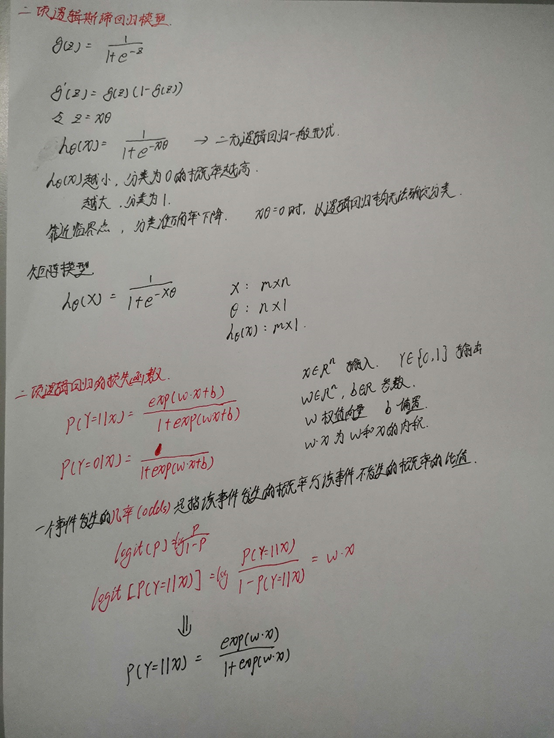 二项逻辑斯谛回归模型.
g(z) = 1/(1+e^{-z})
g'(z) = g(z)(1-g(z))
令 z = xθ
h_θ(x) = 1/(1+e^{-xθ}) → 二元逻辑回归一般形式.
h_θ(x)越小, 分类为0的概率越高.
越大, 分类为1.
靠近临界点, 分类准确率下降. xθ=0时, 从逻辑回归 无法确定分类.
矩阵模型
h_θ(X) = 1/(1+e^{-Xθ})
X: m×n
θ: n×1
h_θ(x): m×1.
二项逻辑回归的损失函数.
P(Y=1|x) = exp(w·x+b)/(1+exp(w·x+b))
P(Y=0|x) = 1/(1+exp(w·x+b))
x∈R^n 输入. Y∈{0,1} 输出
w∈R^n, b∈R 参数.
w 权值向量 b 偏置.
w·x 为 w和x的内积.
一个事件发生的几率(odds)是指该事件发生的概率与该事件不发生的概率的比值.
logit(p) = log p/(1-p)
logit[P(Y=1|x)] = log P(Y=1|x)/(1-P(Y=1|x)) = w·x
⇓
P(Y=1|x) = exp(w·x)/(1+exp(w·x))